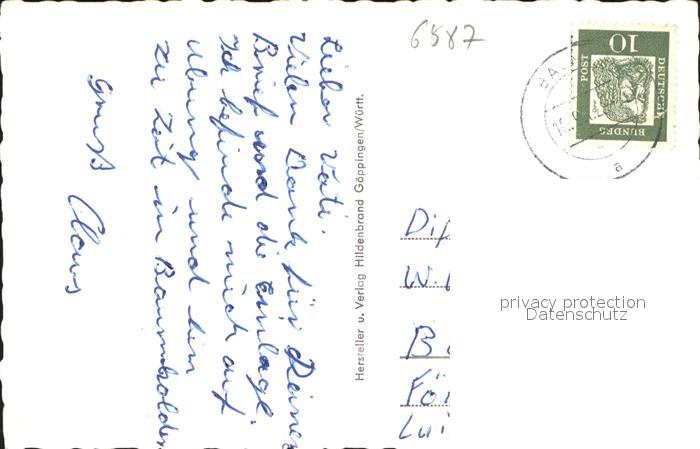 6587
10
DEUTSCHE
BUNDES
POST
Lieber Vati.
Vielen Dank für Deinen
Brief und die Einlage.
Ich befinde mich auf
Übung und bin
zur Zeit in Baumholder
Gruß Claus
Hersteller u. Verlag Hildenbrand Göppingen/Württ.
privacy protection
Datenschutz